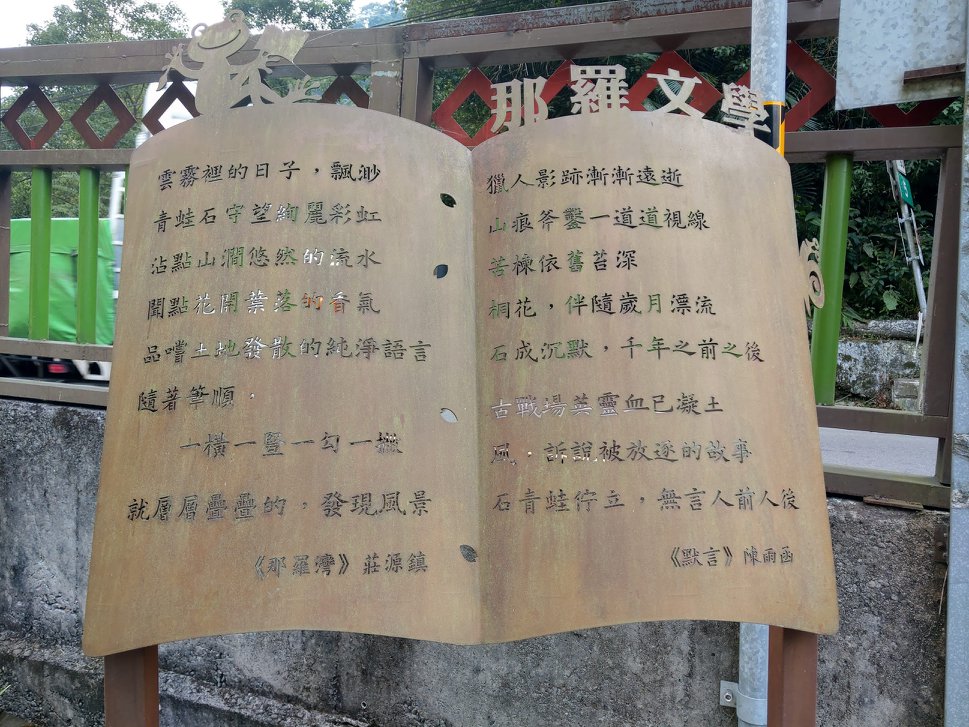 那羅文學
雲霧裡的日子，飄渺
青蛙石守望絢麗彩虹
沾點山澗悠然的流水
聞點花開葉落的香氣
品嚐土地發散的純淨語言
隨著筆順．
一橫一豎一勾一撇
就層層疊疊的，發現風景
《那羅灣》莊源鎮
獵人影跡漸漸遠逝
山痕斧鑿一道道視線
苦楝依舊苔深
桐花，伴隨歲月漂流
石成沉默，千年之前之後
古戰場英靈血已凝土
風．訴說被放逐的故事
石青蛙佇立，無言人前人後
《默言》陳雨函